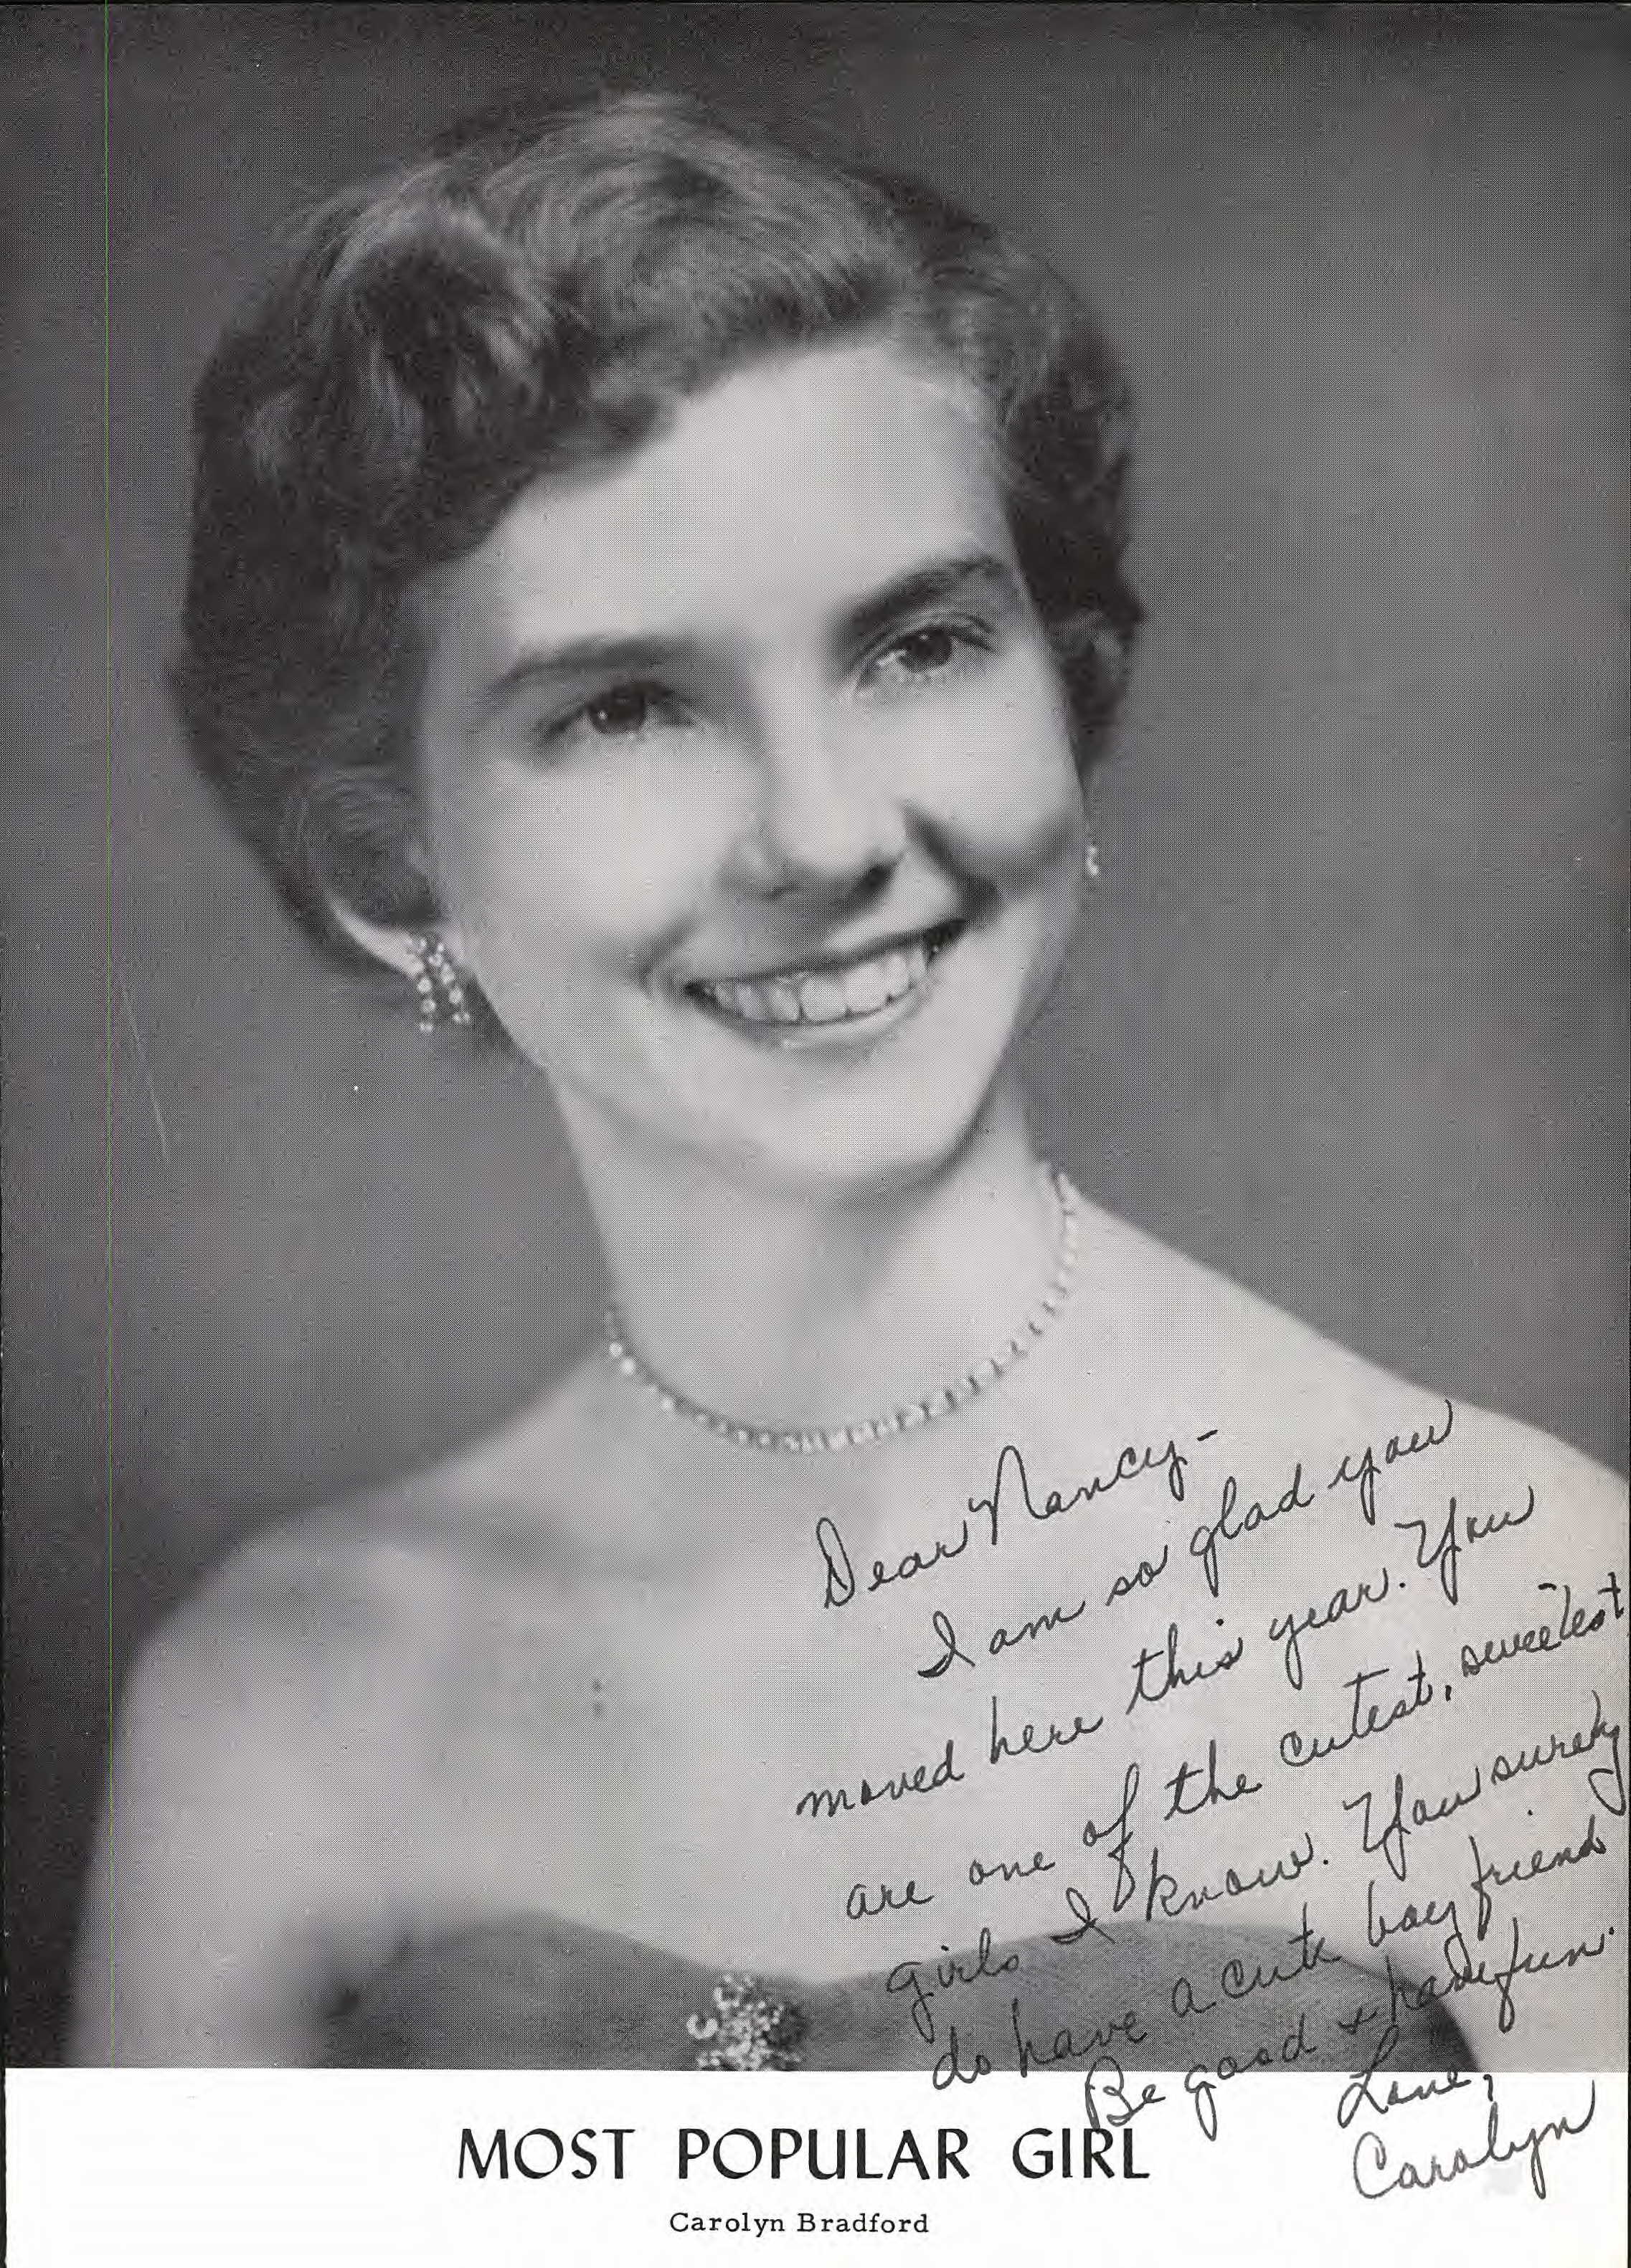 Dear Nancy-
I am so glad you
moved here this year. You
are one of the cutest, sweetest
girls I know. You surely
do have a cute boy friend
Be good + have fun.
Love,
Carolyn
MOST POPULAR GIRL
Carolyn Bradford